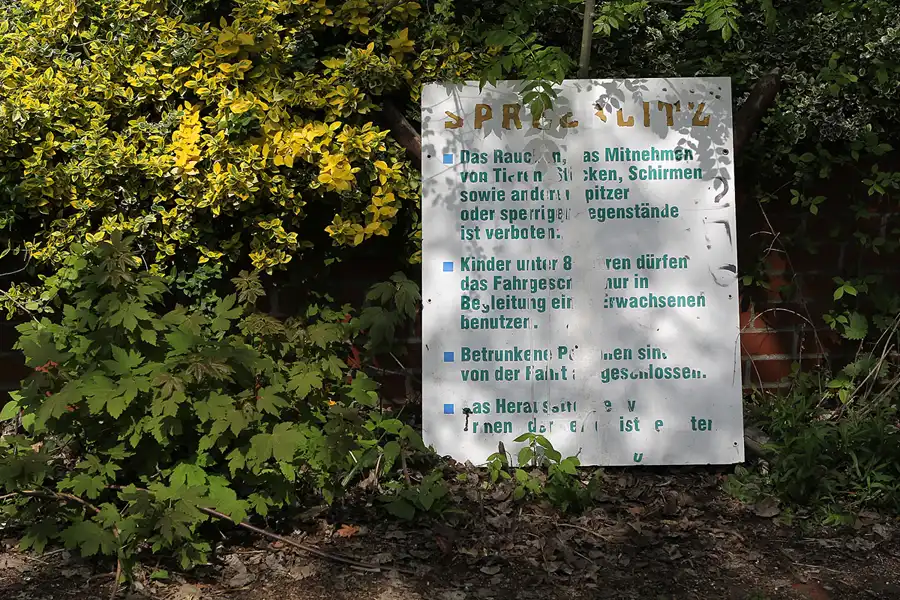 SPREEBLITZ
Das Rauchen, das Mitnehmen
von Tieren, Stöcken, Schirmen
sowie anderer spitzer
oder sperriger Gegenstände
ist verboten.
Kinder unter 8 Jahren dürfen
das Fahrgeschäft nur in
Begleitung eines Erwachsenen
benutzen.
Betrunkene Personen sind
von der Fahrt ausgeschlossen.
Das
ist